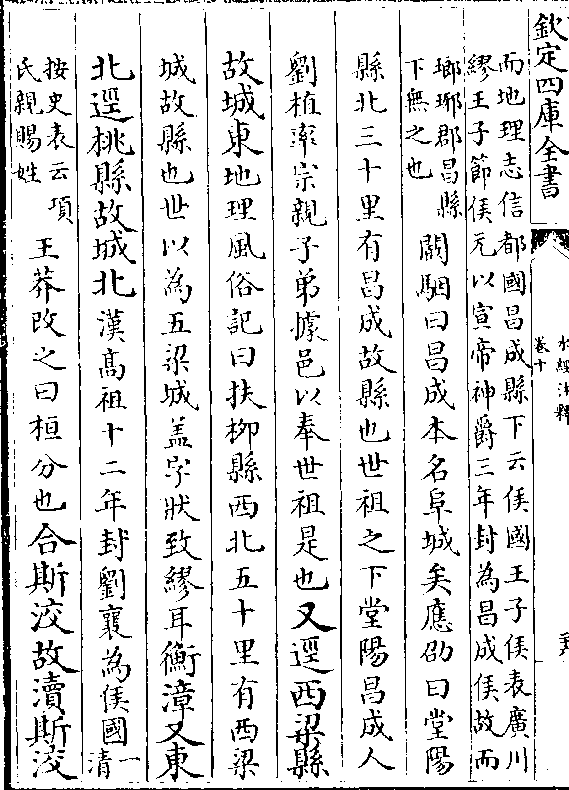 欽定四庫全書
水經注釋
卷十
而地理志信都國昌成縣下云侯國王子侯表廣川
繆王子節侯元以宣帝神爵三年封為昌成侯故而
瑯琊郡昌縣
下無之也
闞駰曰昌成本名阜城矣應劭曰堂陽
縣北三十里有昌成故縣也世祖之下堂陽昌成人
劉植率宗親子弟據邑以奉世祖是也又逕西梁縣
故城東地理風俗記曰扶栁縣西北五十里有西梁
城故縣也世以為五梁城盖字狀致繆耳衡漳又東
北逕桃縣故城北漢高祖十二年封劉襄為侯國
一
清
按史表云項
氏親賜姓
王莽改之曰桓分也合斯洨故瀆斯洨